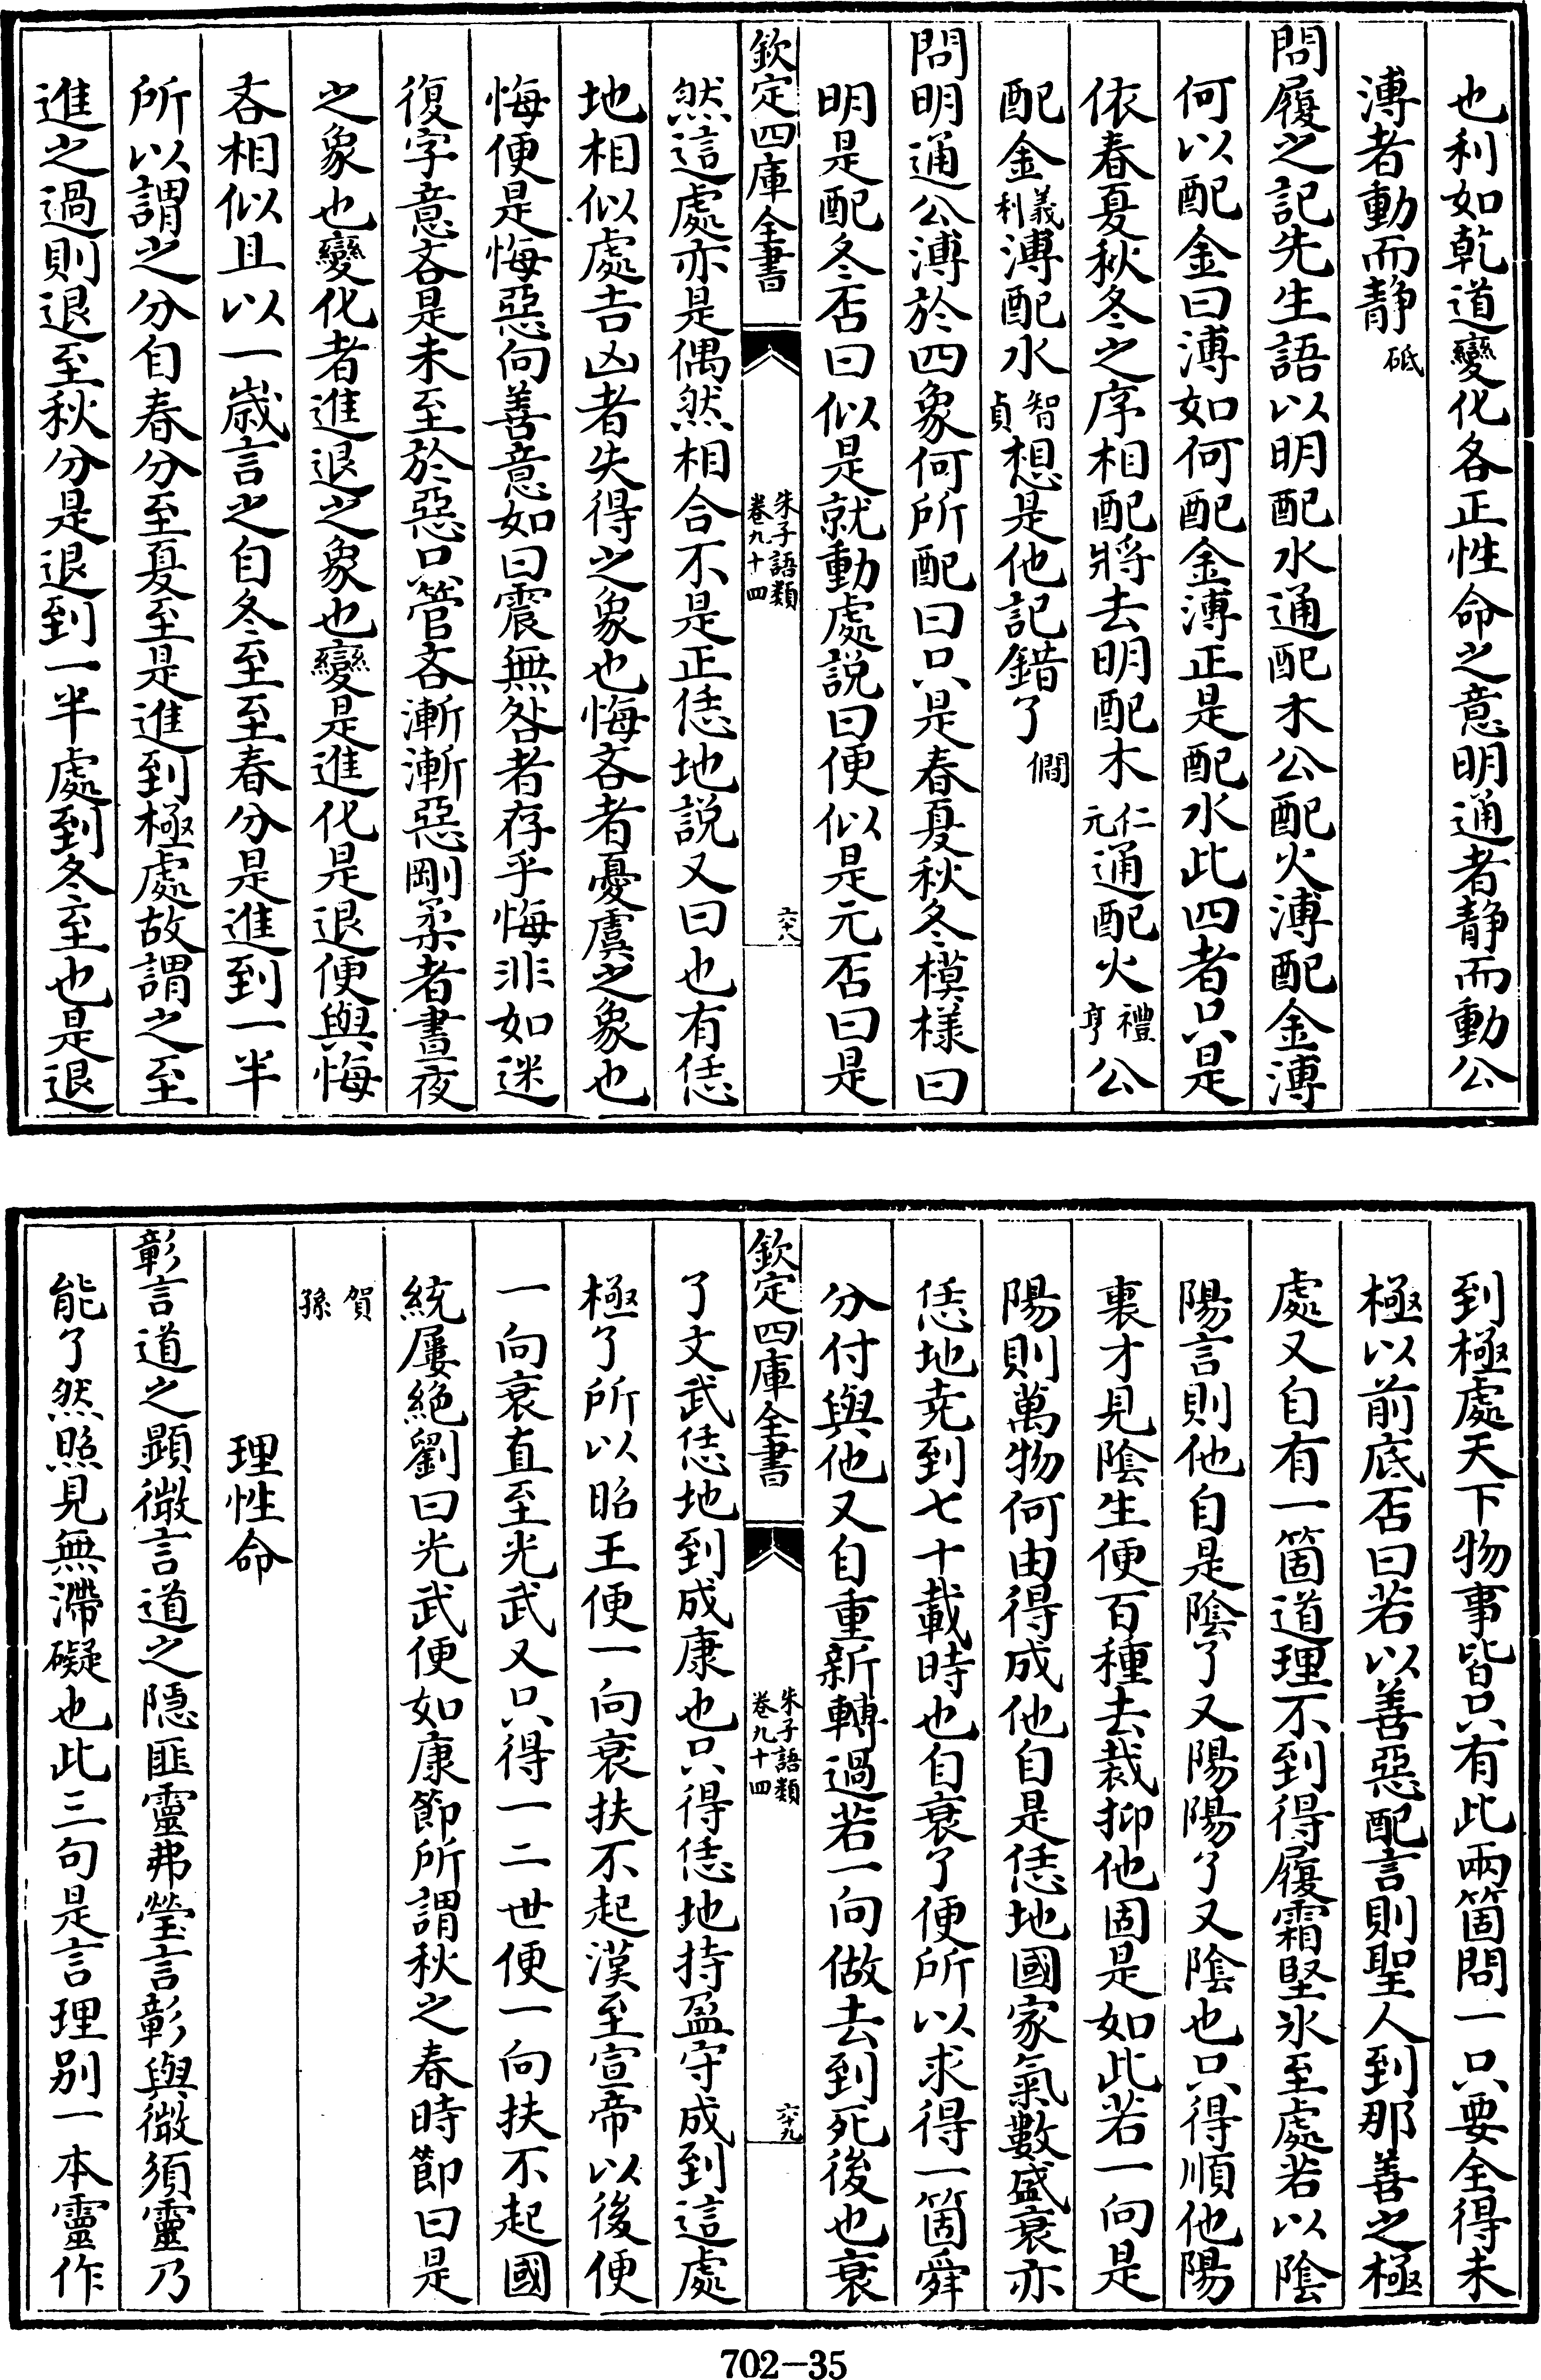 也利如乾道變化各正性命之意明通者静而動公
溥者動而静砥
問履之記先生語以明配水通配木公配火溥配金溥
何以配金曰溥如何配金溥正是配水此四者只是
依春夏秋冬之序相配將去明配木仁元通配火禮亨公
配金義利溥配水智貞想是他記錯了僩
問明通公溥於四象何所配曰只是春夏秋冬模様曰
明是配冬否曰似是就動處説曰便似是元否曰是
欽定四庫全書 朱子語類 卷九十四 六十八
然這處亦是偶然相合不是正恁地説又曰也有恁
地相似處吉凶者失得之象也悔吝者憂虞之象也
悔便是悔惡向善意如曰震無咎者存乎悔非如迷
復字意吝是未至於惡只管吝漸漸惡剛柔者晝夜
之象也變化者進退之象也變是進化是退便與悔
吝相似且以一歳言之自冬至至春分是進到一半
所以謂之分自春分至夏至是進到極處故謂之至
進之過則退至秋分是退到一半處到冬至也是退
到極處天下物事皆只有此兩箇問一只要全得未
極以前底否曰若以善惡配言則聖人到那善之極
處又自有一箇道理不到得履霜堅氷至處若以隂
陽言則他自是隂了又陽陽了又隂也只得順他陽
裏才見隂生便百種去裁抑他固是如此若一向是
陽則萬物何由得成他自是恁地國家氣數盛衰亦
恁地尭到七十載時也自衰了便所以求得一箇舜
分付與他又自重新轉過若一向做去到死後也衰
欽定四庫全書 朱子語類 卷九十四 六十九
了文武恁地到成康也只得恁地持盈守成到這處
極了所以昭王便一向衰扶不起漢至宣帝以後便
一向衰直至光武又只得一二世便一向扶不起國
統屢絶劉曰光武便如康節所謂秋之春時節曰是
賀孫
理性命
彰言道之顯微言道之隱匪靈弗瑩言彰與微須靈乃
能了然照見無滯礙也此三句是言理别一本靈作
702-35